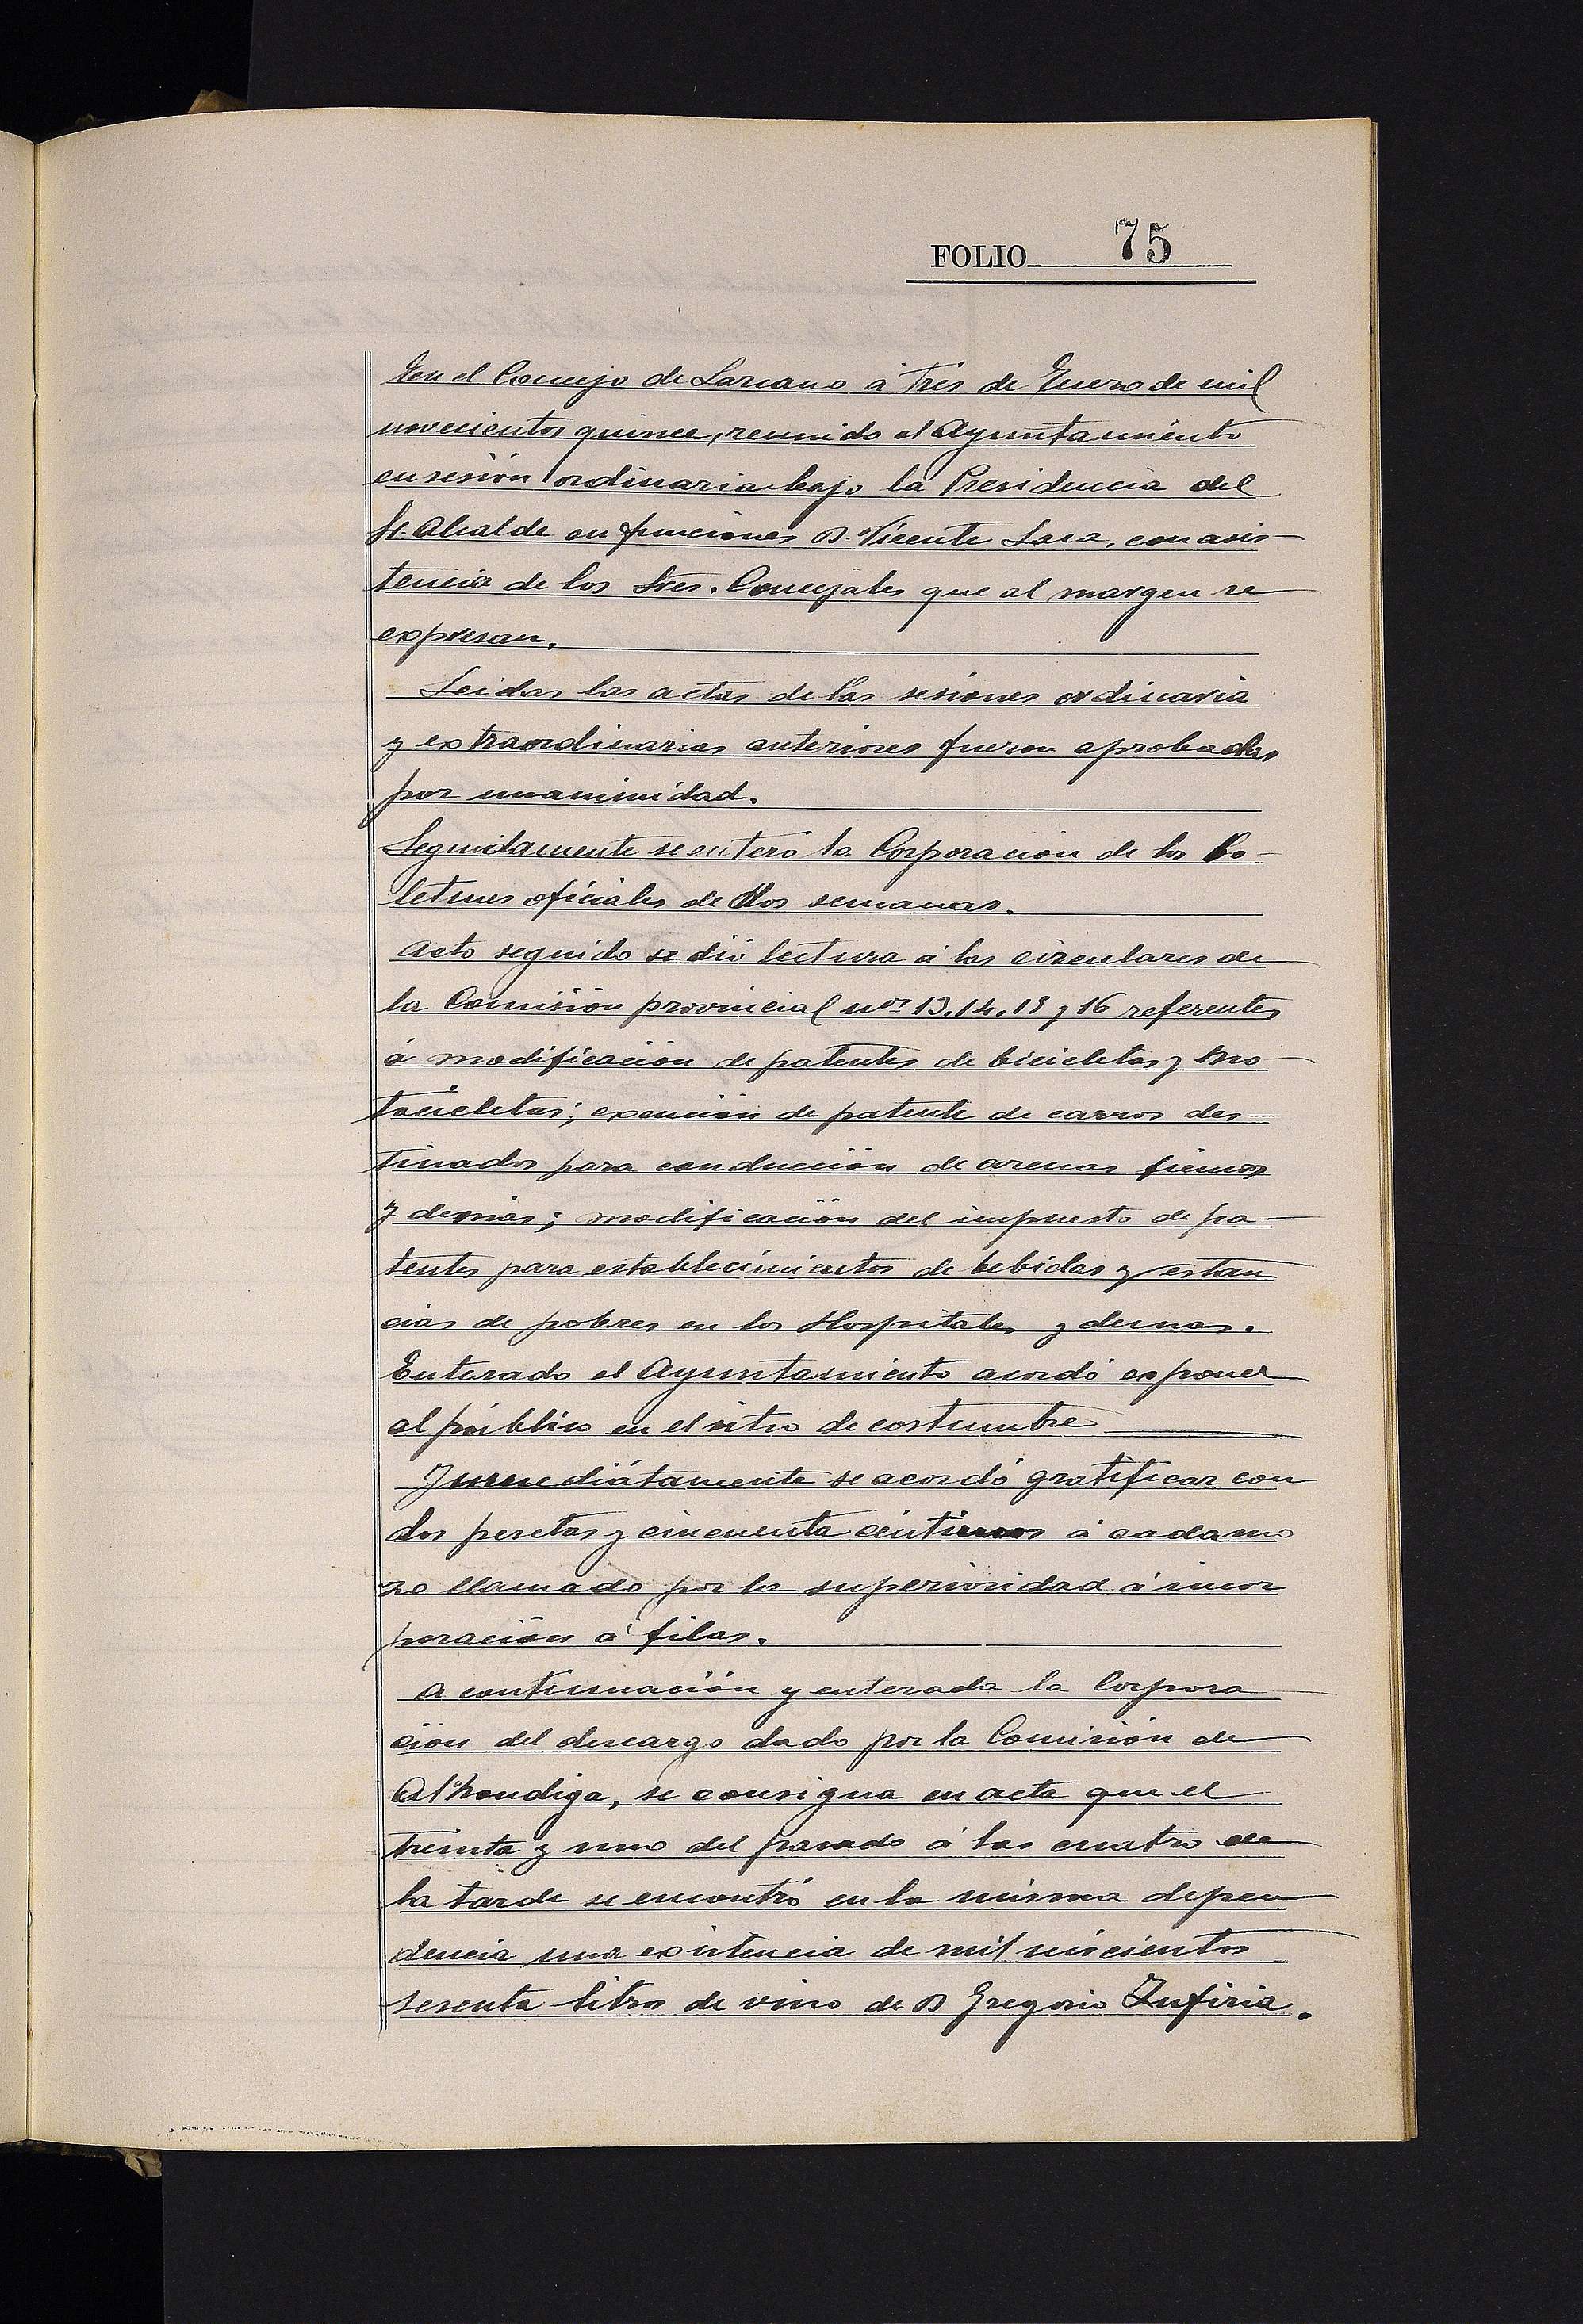 FOLIO 75
En el Concejo de Lazcano á tres de Enero de mil
novecientos quince, reunido el Ayuntamiento
en sesión ordinaria bajo la Presidencia del
Sr. Alcalde en funciones D. Vicente Lasa, con asis-
tencia de los Sres. Concejales que al margen se
expresan.
Leidas las actas de las sesiones ordinaria
y extraordinarias anteriores fueron aprobadas
por unanimidad.
Seguidamente se enteró la Corporación de los Bo-
letines oficiales de dos semanas.
Acto seguido se dió lectura á las circulares de
la Comisión provincial nos 13. 14. 15 y 16 referentes
á modificación de patentes de bicicletas y mo-
tocicletas; exención de patente de carros des-
tinados para conducción de arenas fiemos
y demás; modificación del impuesto de pa-
tentes para establecimientos de bebidas y estan
cias de pobres en los Hospitales y demas.
Enterado el Ayuntamiento acordó exponer
al público en el sitio de costumbre
Inmediátamente se acordó gratificar con
dos pesetas y cincuenta céntimos á cada mo
zo llamado por la superioridad á incor
poración á filas.
A continuación y enterada la Corpora
ción del descargo dado por la Comisión de
Alhondiga, se consigna en acta que el
treinta y uno del pasado á las cuatro de
la tarde se encontró en la misma depen
dencia una existencia de mil seiscientos
sesenta litros de vino de D Gregorio Zufiria.